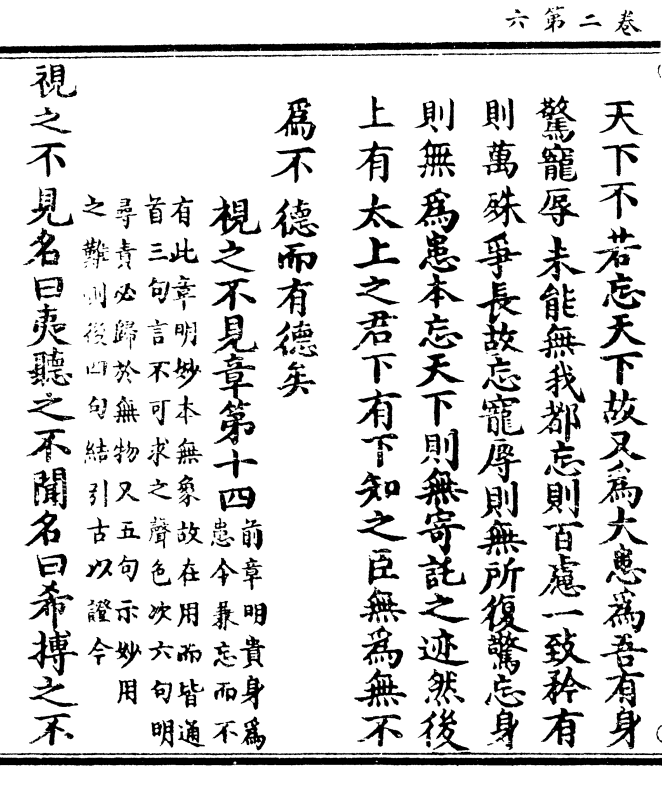 卷二第六
天下不若忘天下故又為大患為吾有身
驚寵辱未能無我都忘則百慮一致矜有
則萬殊爭長故忘寵辱則無所復驚忘身
則無為患本忘天下則無寄託之迹然後
上有太上之君下有下知之臣無為無不
為不德而有德矣
視之不見章第十四
前章明貴身為
患令兼忘而不
有此章明妙本無象故在用而皆通
首三句言不可求之聲色次六句明
尋責必歸於無物又五句示妙用
之難測後四句結引古以證今
視之不見名曰夷聽之不聞名曰希搏之不